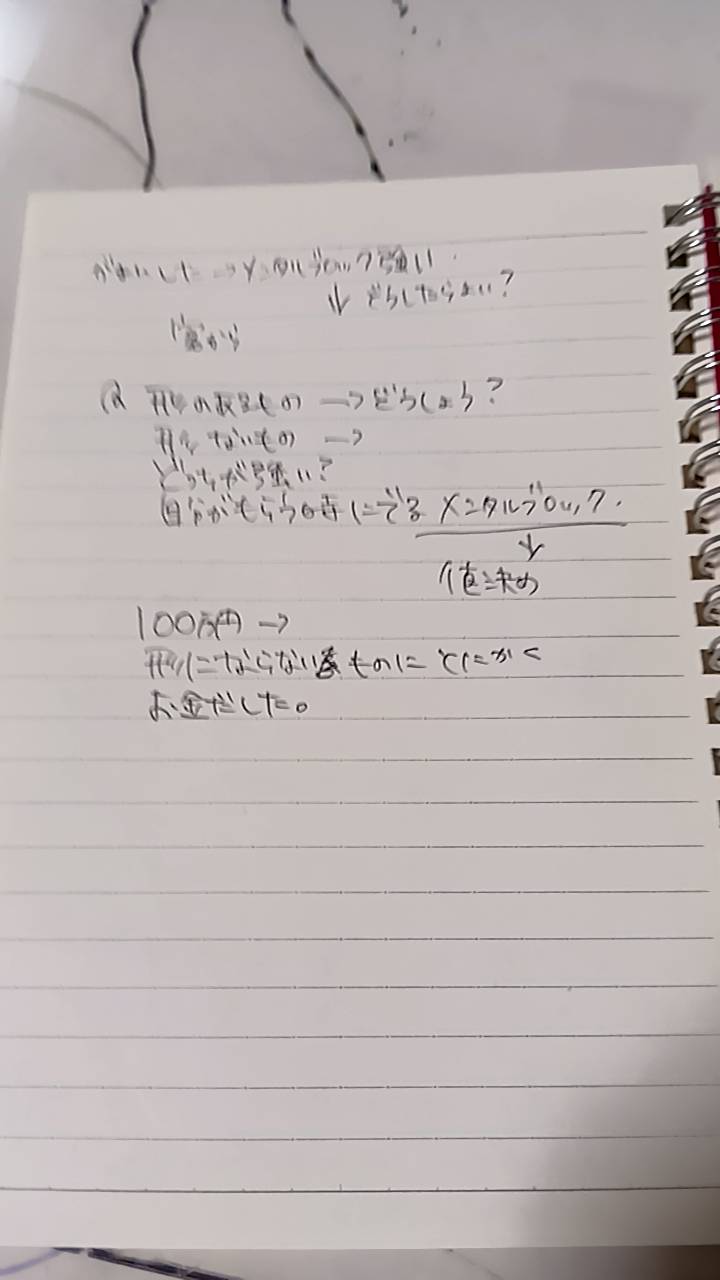 →メンタルブロック強い.
↓どうしたらよい?
から
Q 形のあるもの →どうしよう?
形 ないもの →
どっちが強い?
自分がもらう時にでる メンタルブロック.
↓
値決め
100万円 →
形にならないものに とにかく
お金だした。